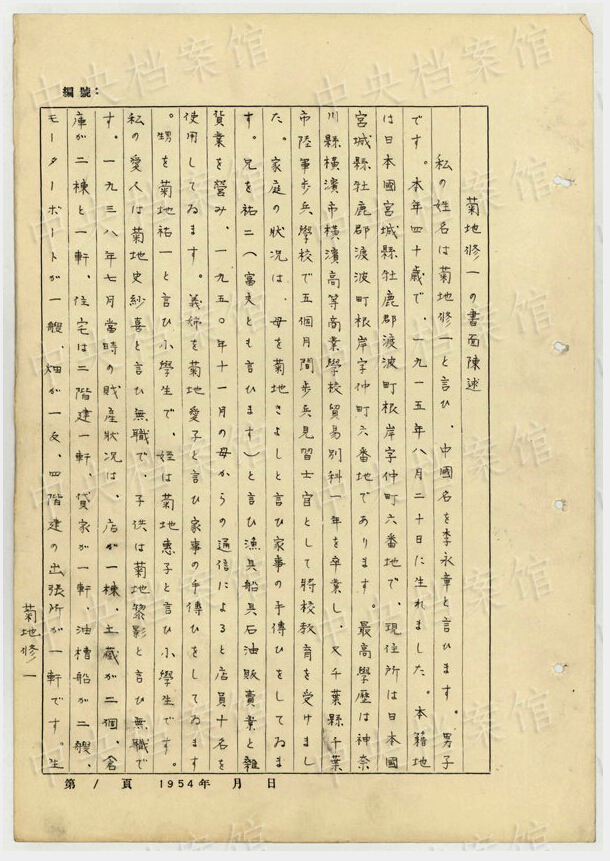 編號：
菊地修一の書面陳述
私の姓名は菊地修一と言ひ、中國名を李永章と言ひます。男子
です。本年四十歳で、一九一五年八月二十日に生れました。本籍地
は日本國宮城縣牡鹿郡渡波町根岸字仲町六番地で、現住所は日本國
宮城縣牡鹿郡渡波町根岸字仲町六番地であります。最高學歴は神奈
川縣横濱市横濱高等商業學校貿易別科一年を卒業し、又千葉縣千葉
市陸軍歩兵學校で五個月間歩兵見習士官として將校教育を受けまし
た。家庭の狀況は、母を菊地きよしと言ひ家事の手傳ひをしてゐま
す。兄を祐二（富夫とも言ひます）と言ひ漁具船具石油販賣業と雜
貨業を營み、一九五〇年十一月の母からの通信によると店員十名を
使用してゐます。義姉を菊地愛子と言ひ家事の手傳ひをしてゐます
。甥を菊地祐一と言ひ小學生で、姪は菊地惠子と言ひ小學生です。
私の愛人は菊地史紗喜と言ひ無職で、子供は菊地黎影と言ひ無職で
す。一九三八年七月當時の財產狀況は、店が一棟、土藏が二個、倉
庫が二棟と一軒、住宅は二階建一軒、貸家が一軒、油槽船が二艘、
モーターボートが一艘、畑が一反、四階建の出張所が一軒です。生
菊地修一
第 1 頁 1954年 月 日
中央档案馆